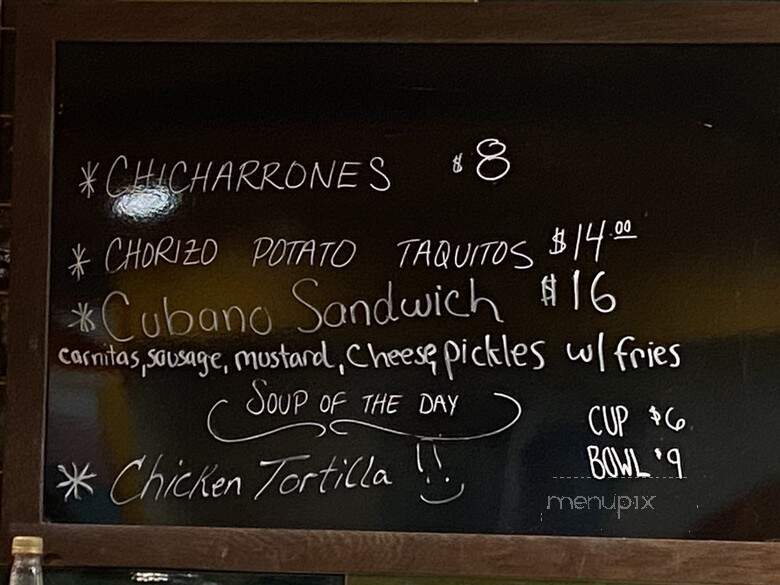 * CHICHARRONES $8
* CHORIZO POTATO TAQUITOS $14.00
* Cubano Sandwich $16
carnitas, sausage, mustard, cheese, pickles w/ fries
SOUP OF THE DAY
CUP $6
* Chicken Tortilla !!
BOWL $9
menupix